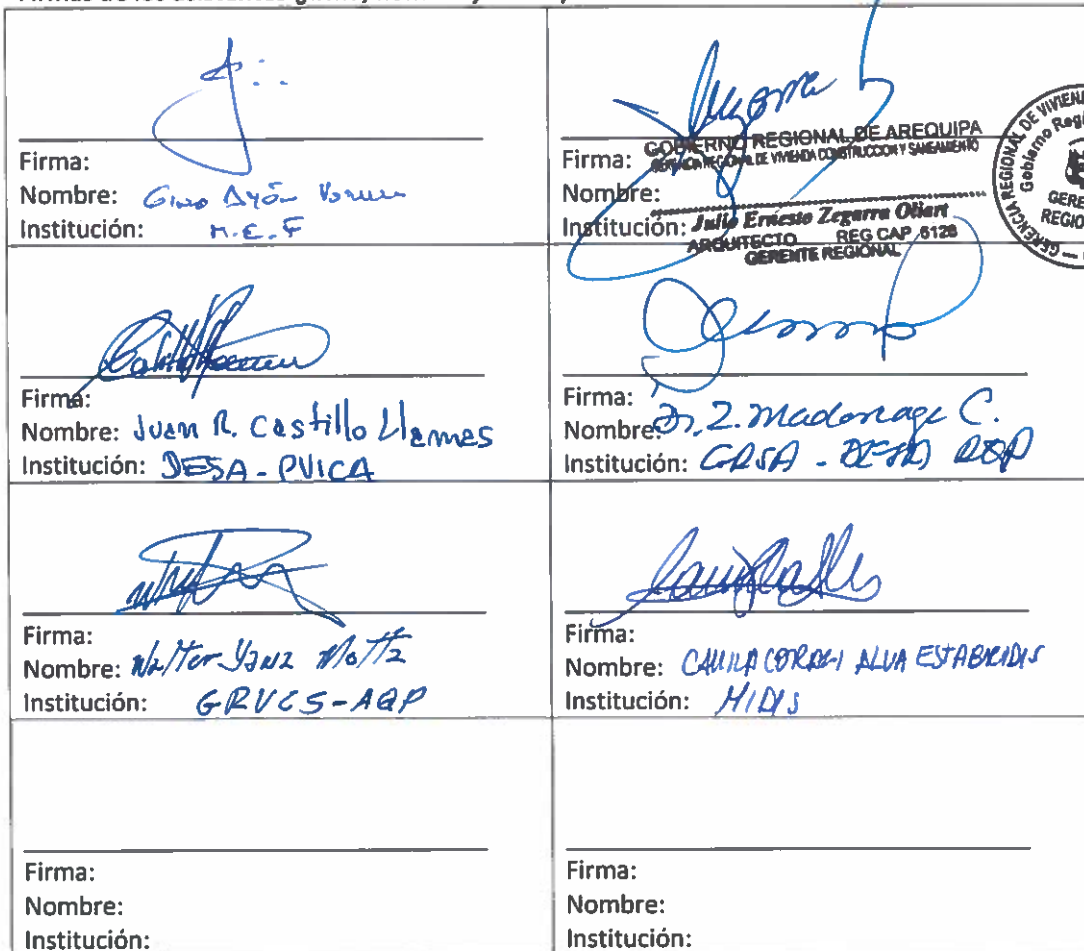 Firma:
Nombre: Gino Ayón
Institución: M.E.F
GOBIERNO REGIONAL DE AREQUIPA
GERENCIA REGIONAL DE VIVIENDA CONSTRUCCION Y SANEAMIENTO
Firma:
Nombre:
Institución:
Julio Ernesto Zegarra Oliart
ARQUITECTO REG CAP 6128
GERENTE REGIONAL
GERENCIA REGIONAL DE VIVIEN
Gobierno Regi
GERE
REGIO
Firma:
Nombre: Juan R. Castillo Llamas
Institución: DESA - PVICA
Firma:
Nombre: Z. C.
Institución:
Firma:
Nombre: Walter Yanz Motta
Institución: GRVCS-AQP
Firma:
Nombre: CAMILA CORAZI ALVA ESTABRIDIS
Institución: MIDIS
Firma:
Nombre:
Institución:
Firma:
Nombre:
Institución: